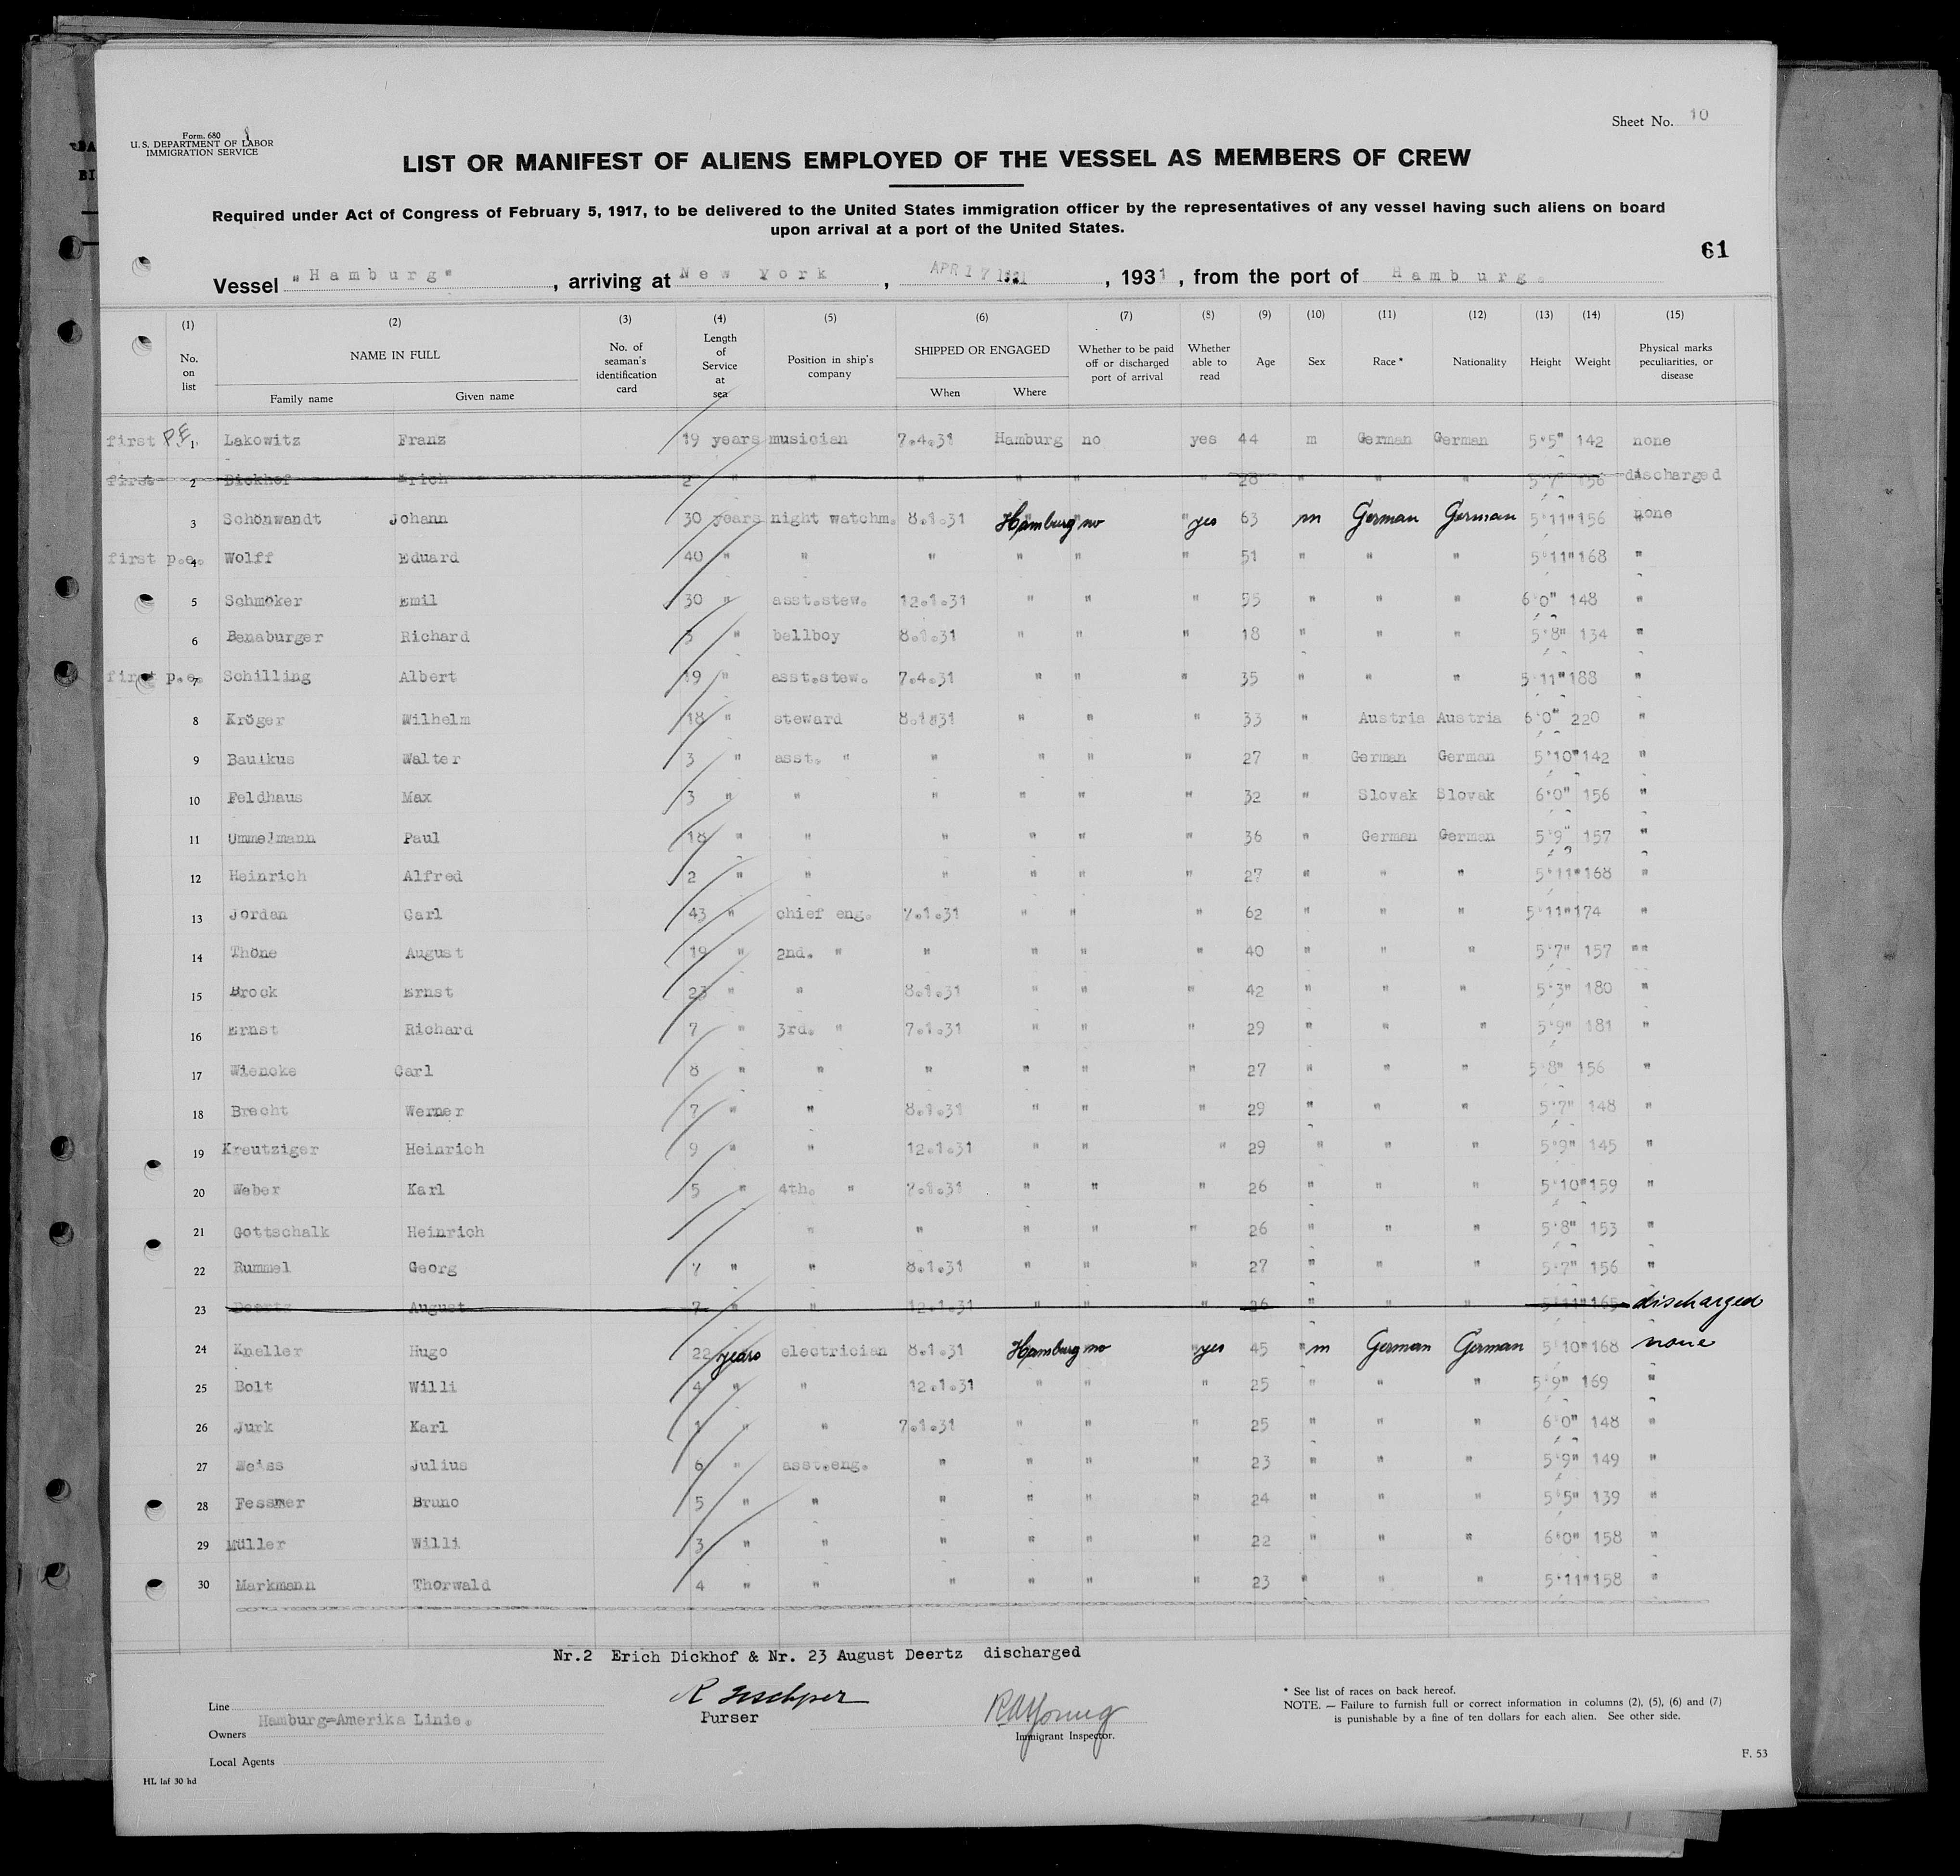 Form. 680
U. S. DEPARTMENT OF LABOR
IMMIGRATION SERVICE
Sheet No. 10
LIST OR MANIFEST OF ALIENS EMPLOYED OF THE VESSEL AS MEMBERS OF CREW
Required under Act of Congress of February 5, 1917, to be delivered to the United States immigration officer by the representatives of any vessel having such aliens on board
upon arrival at a port of the United States.
61
Vessel "Hamburg", arriving at New York, APR 17 1931, 1931, from the port of Hamburg.
(1) (2) (3) (4) (5) (6) (7) (8) (9) (10) (11) (12) (13) (14) (15)
No. on list NAME IN FULL Family name Given name No. of seaman's identification card Length of Service at sea Position in ship's company SHIPPED OR ENGAGED When Where Whether to be paid off or discharged port of arrival Whether able to read Age Sex Race * Nationality Height Weight Physical marks peculiarities, or disease
first P.E. 1 Lakowitz Franz 19 years musician 7.4.31 Hamburg no yes 44 m German German 5'5" 142 none
first 2 Dickhof Erich 2 " " " " " " 28 " " " 5'7" 156 discharged
3 Schönwandt Johann 30 years night watchm. 8.1.31 Hamburg no yes 63 m German German 5'11" 156 none
first p.e. 4 Wolff Eduard 40 " " " " " " 51 " " " 5'11" 168 "
5 Schmöker Emil 30 " asst.stew. 12.1.31 " " " 55 " " " 6'0" 148 "
6 Benaburger Richard 3 " bellboy 8.1.31 " " " 18 " " " 5'8" 134 "
first p.e. 7 Schilling Albert 19 " asst.stew. 7.4.31 " " " 35 " " " 5'11" 188 "
8 Kröger Wilhelm 18 " steward 8.1.31 " " " 33 " Austria Austria 6'0" 220 "
9 Baulkus Walter 3 " asst. " " " " " 27 " German German 5'10" 142 "
10 Feldhaus Max 3 " " " " " " 32 " Slovak Slovak 6'0" 156 "
11 Ummelmann Paul 18 " " " " " " 36 " German German 5'9" 157 "
12 Heinrich Alfred 2 " " " " " " 27 " " " 5'11" 168 "
13 Jordan Carl 43 " chief eng. 7.1.31 " " " 62 " " " 5'11" 174 "
14 Thöne August 19 " 2nd. " " " " " 40 " " " 5'7" 157 ""
15 Brock Ernst 23 " " 8.1.31 " " " 42 " " " 5'3" 180 "
16 Ernst Richard 7 " 3rd. " 7.1.31 " " " 29 " " " 5'9" 181 "
17 Wiencke Carl 8 " " " " " " 27 " " " 5'8" 156 "
18 Brecht Werner 7 " " 8.1.31 " " " 29 " " " 5'7" 148 "
19 Kreutziger Heinrich 9 " " 12.1.31 " " " 29 " " " 5'9" 145 "
20 Weber Karl 5 " 4th. " 7.1.31 " " " 26 " " " 5'10" 159 "
21 Gottschalk Heinrich " " " " " 26 " " " 5'8" 153 "
22 Rummel Georg 7 " " 8.1.31 " " " 27 " " " 5'7" 156 "
23 Deertz August 7 " " 12.1.31 " " " 26 " " " 5'11" 165 discharged
24 Kneller Hugo 22 years electrician 8.1.31 Hamburg no yes 45 m German German 5'10" 168 none
25 Bolt Willi 4 " " 12.1.31 " " " 25 " " " 5'9" 169 "
26 Jurk Karl 1 " " 7.1.31 " " " 25 " " " 6'0" 148 "
27 Weiss Julius 6 " asst.eng. " " " " 23 " " " 5'9" 149 "
28 Fessmer Bruno 5 " " " " " " 24 " " " 5'5" 139 "
29 Müller Willi 3 " " " " " " 22 " " " 6'0" 158 "
30 Markmann Thorwald 4 " " " " " " 23 " " " 5'11" 158 "
Nr.2 Erich Dickhof & Nr. 23 August Deertz discharged
Line
Owners Hamburg-Amerika Linie.
Local Agents
Purser
RA Young
Immigrant Inspector.
* See list of races on back hereof.
NOTE. — Failure to furnish full or correct information in columns (2), (5), (6) and (7)
is punishable by a fine of ten dollars for each alien. See other side.
F. 53
HL laf 30 hd